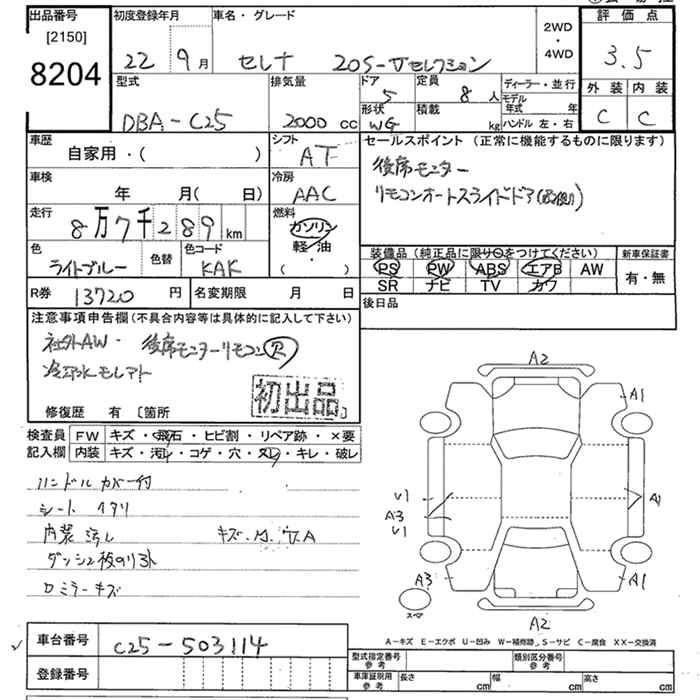 出品番号
[2150]
8204
初度登録年月
22 9月
車名・グレード
セレナ 20S-Vセレクション
2WD
・
4WD
評価点
3.5
外装 内装
C C
型式
DBA-C25
排気量
2000 cc
ドア
5
形状
WG
定員
8人
積載
kg
ディーラー・並行
モデル年式 年
ハンドル 左・右
車歴
自家用・( )
シフト
AT
車検
年 月( 日)
冷房
AAC
走行
8万7千289 km
燃料
ガソリン
軽・油
・
( )
色
ライトブルー
色替
色コード
KAK
R券 13720円
名変期限 月 日
セールスポイント (正常に機能するものに限ります)
後席モニター
リモコンオートスライドドア
装備品 (純正品に限り○をつけてください)
新車保証書
PS PW ABS エアB AW
SR ナビ TV カワ
有・無
後日品
注意事項申告欄(不具合内容等は具体的に記入して下さい)
社外AW・後席モニターリモコン欠
冷却水モレアト
初出品
修復歴 有 [箇所 ]
検査員 FW キズ・飛石・ヒビ割・リペア跡・×要
記入欄 内装 キズ・汚レ・コゲ・穴・スレ・キレ・破レ
ハンドルカバー付
シートヘタリ
内装汚レ
キズ.
ダッシュ板のり跡
ロミラーキズ
A2
A1
U1
A3
U1
A1
A3
A1
スペア
A2
A-キズ E-エクボ U-凹み W-補修跡 S-サビ C-腐食 XX-交換済
車台番号 C25-503114
登録番号
型式指定番号
参考
類別区分番号
参考
車庫証明用
参考
長さ cm 幅 cm 高さ cm